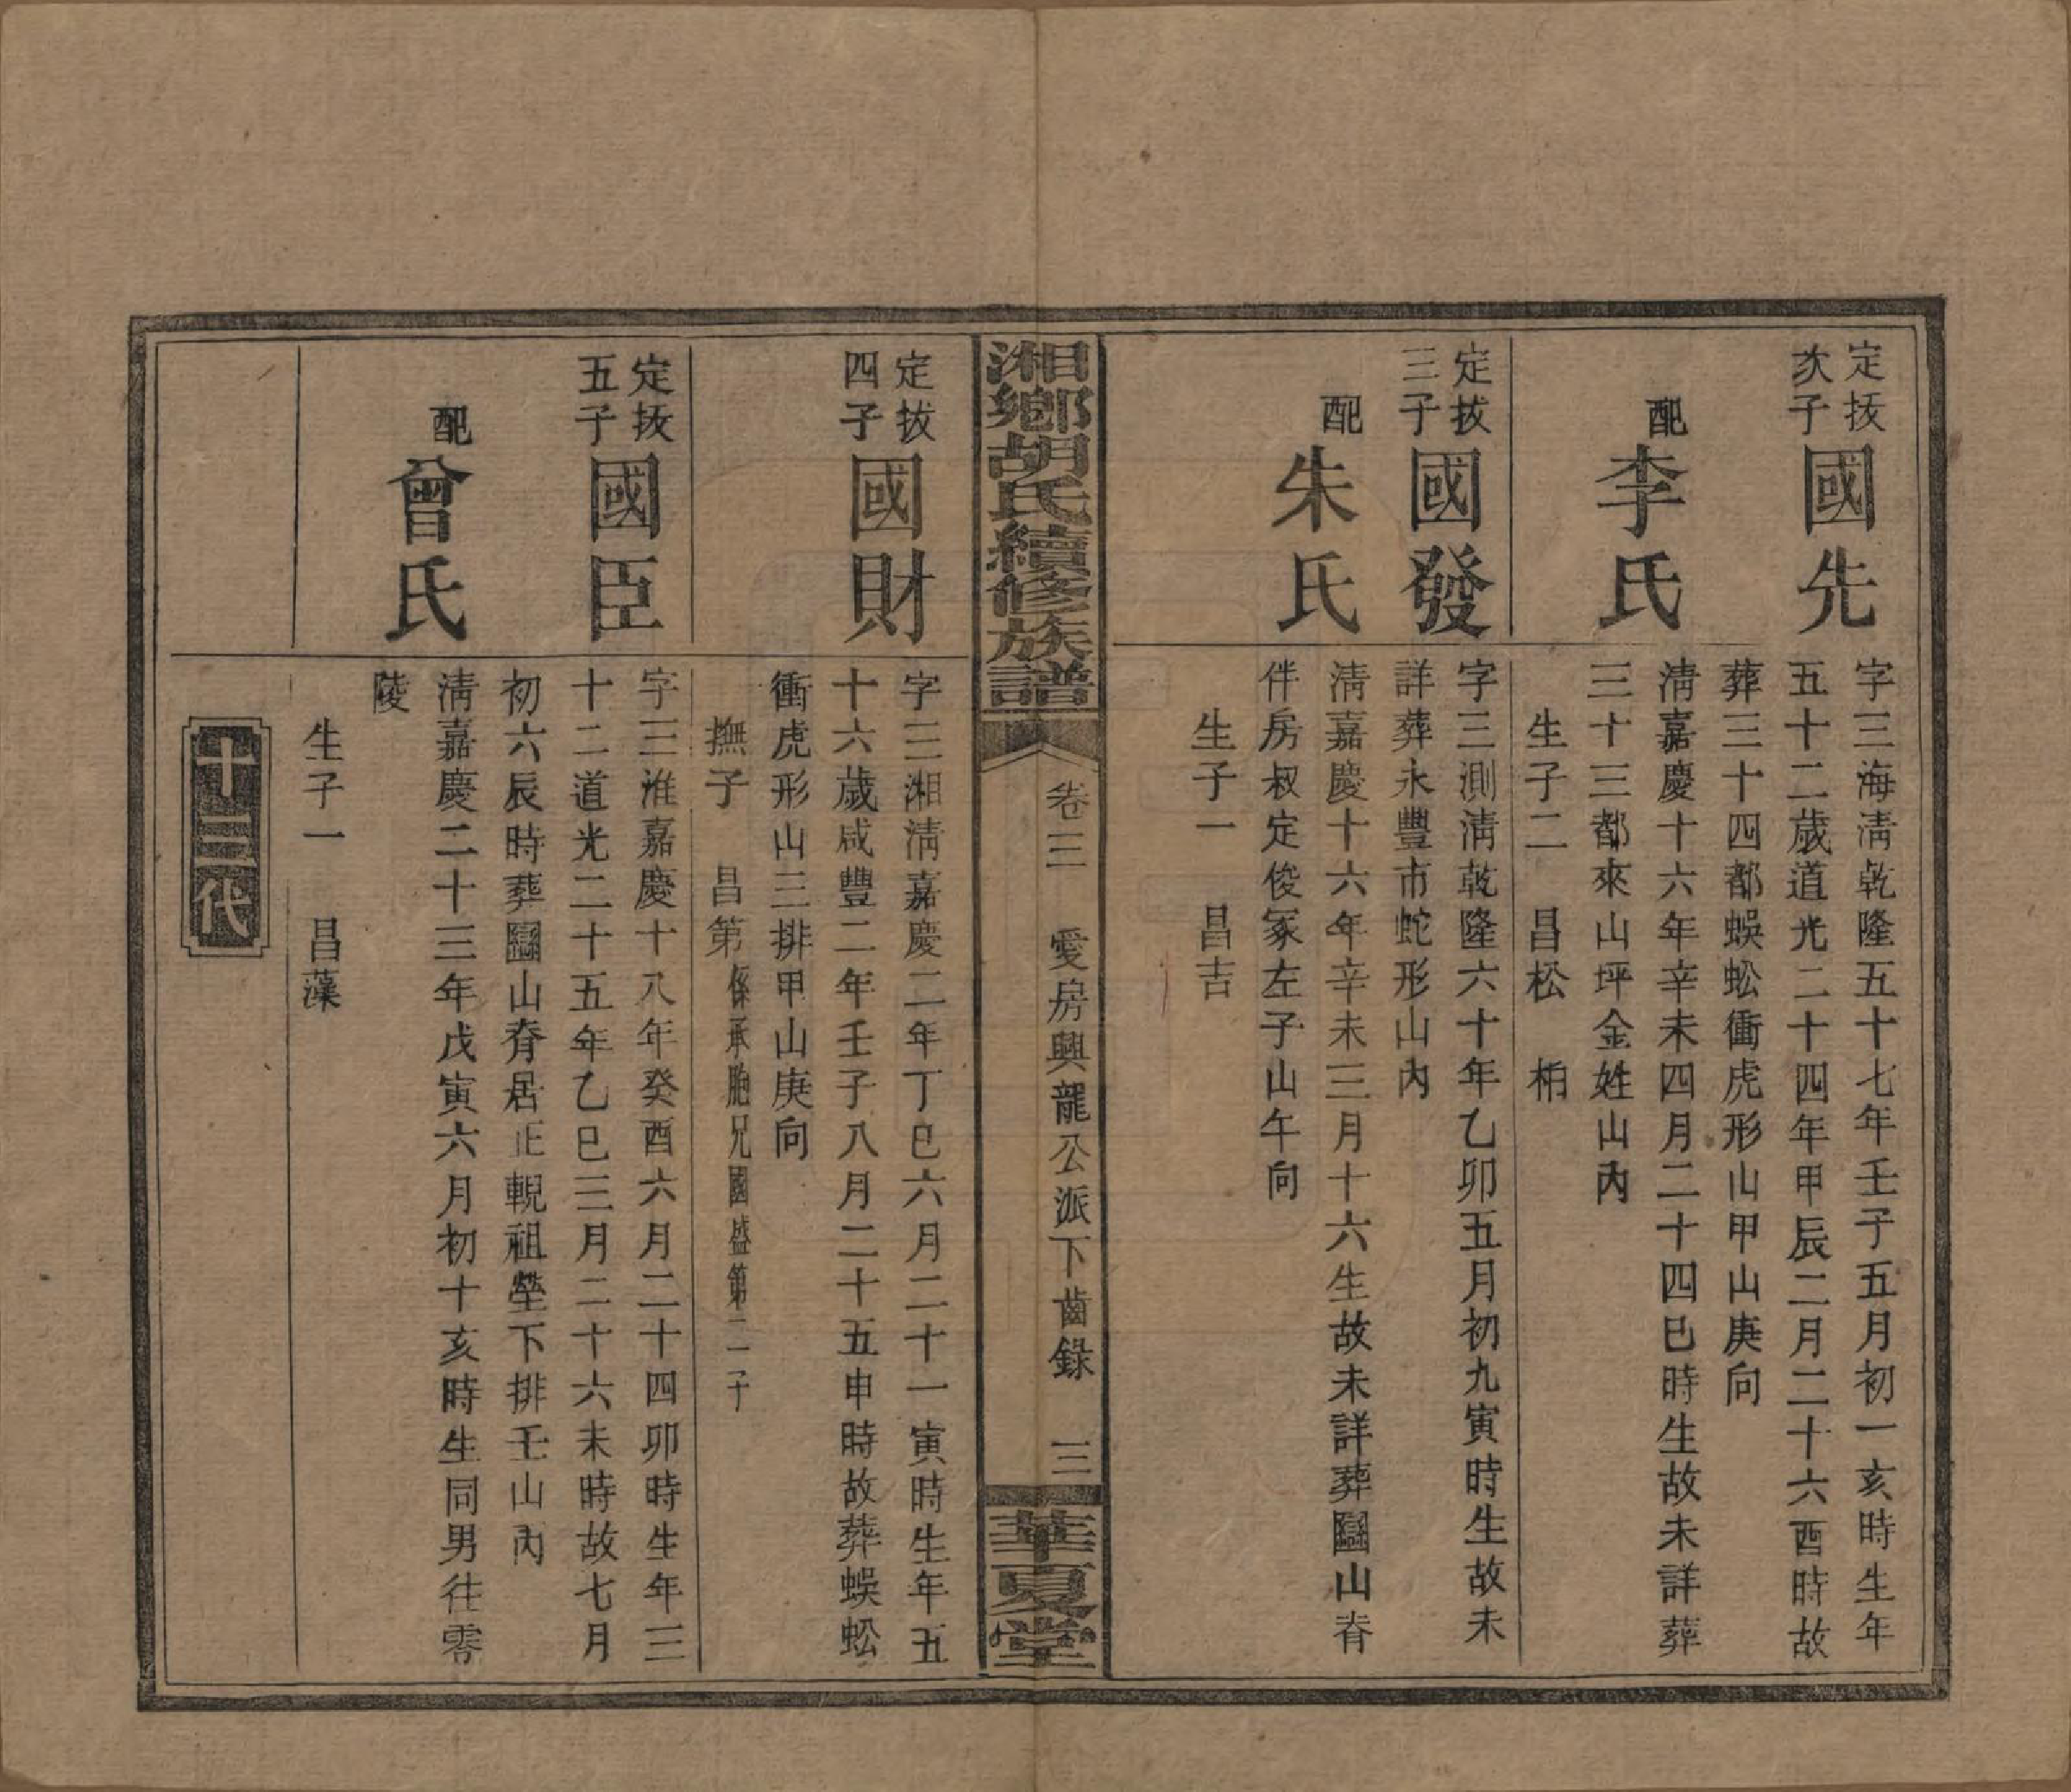 定抜
次子
國先
字三海淸乾隆五十七年壬子五月初一亥時生年
五十二歲道光二十四年甲辰二月二十六酉時故
葬三十四都蜈蚣衝虎形山甲山庚向
配
李氏
淸嘉慶十六年辛未四月二十四巳時生故未詳葬
三十三都來山坪金姓山內
生子二 昌松 栢
定拔
三子
國發
字三測淸乾隆六十年乙卯五月初九寅時生故未
詳葬永豐市蛇形山內
配
朱氏
淸嘉慶十六年辛未三月十六生故未詳葬圝山脊
伴房叔定俊冢左子山午向
生子一 昌吉
湘鄉胡氏續修族譜
卷三 愛房興龍公派下齒錄 三
華夏堂
定拔
四子
國財
字三湘淸嘉慶二年丁巳六月二十一寅時生年五
十六歲咸豐二年壬子八月二十五申時故葬蜈蚣
衝虎形山三排甲山庚向
撫子 昌第係承胞兄國盛第二子
定抜
五子
國臣
字三淮嘉慶十八年癸酉六月二十四卯時生年三
十二道光二十五年乙巳三月二十六未時故七月
初六辰時葬圝山脊居正輗祖塋下排壬山內
配
曾氏
淸嘉慶二十三年戊寅六月初十亥時生同男往零
陵
生子一 昌藻
十三代